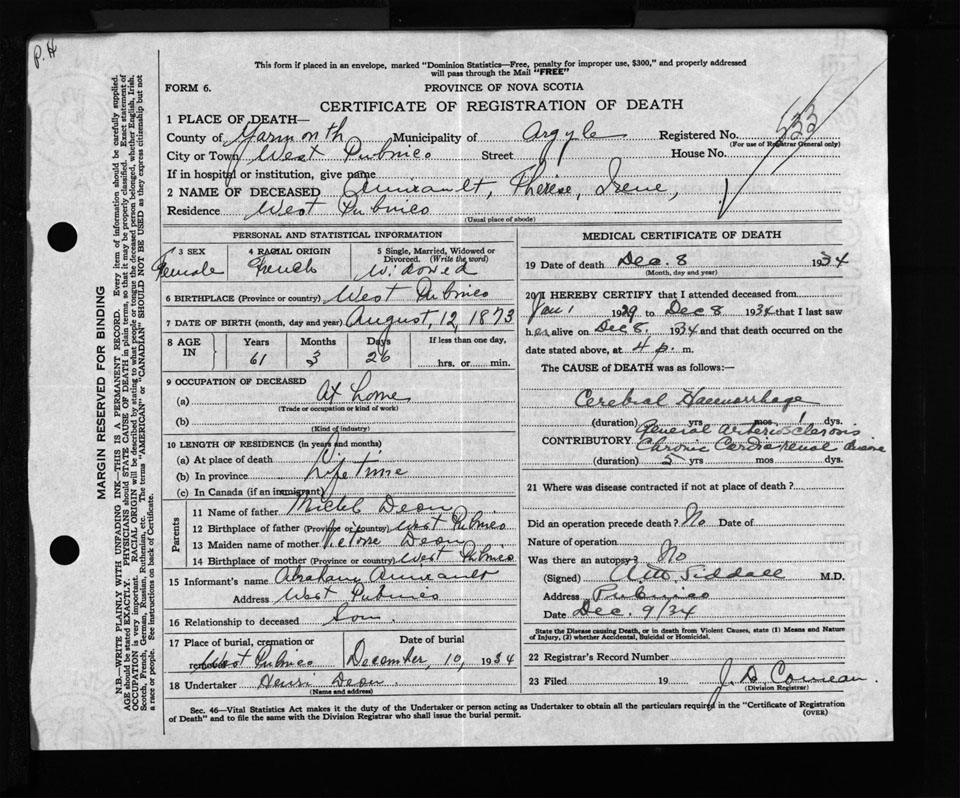 P. H
This form if placed in an envelope, marked "Dominion Statistics—Free, penalty for improper use, $300," and properly addressed
will pass through the Mail "FREE"
FORM 6.
PROVINCE OF NOVA SCOTIA
CERTIFICATE OF REGISTRATION OF DEATH
1 PLACE OF DEATH—
County of Yarmouth Municipality of Argyle Registered No. 533
(For use of Registrar General only)
City or Town West Pubnico Street House No.
If in hospital or institution, give name
2 NAME OF DECEASED Amirault, Therese, Irene,
Residence West Pubnico
(Usual place of abode)
PERSONAL AND STATISTICAL INFORMATION
3 SEX Female
4 RACIAL ORIGIN French
5 Single, Married, Widowed or Divorced. (Write the word) Widowed
6 BIRTHPLACE (Province or country) West Pubnico
7 DATE OF BIRTH (month, day and year) August, 12, 1873
8 AGE IN Years 61 Months 3 Days 26 If less than one day, hrs. or min.
9 OCCUPATION OF DECEASED
(a) At home
(Trade or occupation or kind of work)
(b)
(Kind of industry)
10 LENGTH OF RESIDENCE (in years and months)
(a) At place of death
(b) In province Life time
(c) In Canada (if an immigrant)
Parents
11 Name of father Deon
12 Birthplace of father (Province or country) West Pubnico
13 Maiden name of mother Deon
14 Birthplace of mother (Province or country) West Pubnico
15 Informant's name Abraham Amirault
Address West Pubnico
16 Relationship to deceased Son.
17 Place of burial, cremation or removal West Pubnico
Date of burial December, 10, 1934
18 Undertaker Henri Deon.
(Name and address)
MEDICAL CERTIFICATE OF DEATH
19 Date of death Dec. 8 1934
(Month, day and year)
20 I HEREBY CERTIFY that I attended deceased from
Jan 1 1929 to Dec 8 1934 that I last saw
her alive on Dec 8. 1934 and that death occurred on the
date stated above, at 4 p. m.
The CAUSE of DEATH was as follows:—
Cerebral Haemorrhage
(duration) yrs mos 1 dys.
General Arteriosclerosis
CONTRIBUTORY Chronic Cardiorenal disease
(duration) 5 yrs mos dys.
21 Where was disease contracted if not at place of death?
Did an operation precede death? No Date of
Nature of operation
Was there an autopsy? No
(Signed) Siddall M.D.
Address Pubnico
Date Dec. 9/34
State the Disease causing Death, or in death from Violent Causes, state (1) Means and Nature
of Injury, (2) whether Accidental, Suicidal or Homicidal.
22 Registrar's Record Number
23 Filed 19 Comeau.
(Division Registrar)
Sec. 46—Vital Statistics Act makes it the duty of the Undertaker or person acting as Undertaker to obtain all the particulars required in the "Certificate of Registration
of Death" and to file the same with the Division Registrar who shall issue the burial permit.
(OVER)
MARGIN RESERVED FOR BINDING
N.B.—WRITE PLAINLY WITH UNFADING INK—THIS IS A PERMANENT RECORD. Every item of information should be carefully supplied.
AGE should be stated EXACTLY. PHYSICIANS should STATE CAUSE OF DEATH in plain terms, so that it may be properly classified. Exact statement of
OCCUPATION is very important. RACIAL ORIGIN will be described by stating to what people or tongue the deceased person belonged, whether English, Irish,
Scotch, French, German, Russian, Ruthenian, etc. The terms "AMERICAN" or "CANADIAN" SHOULD NOT BE USED as they express citizenship but not
a race or people. See instructions on back of Certificate.